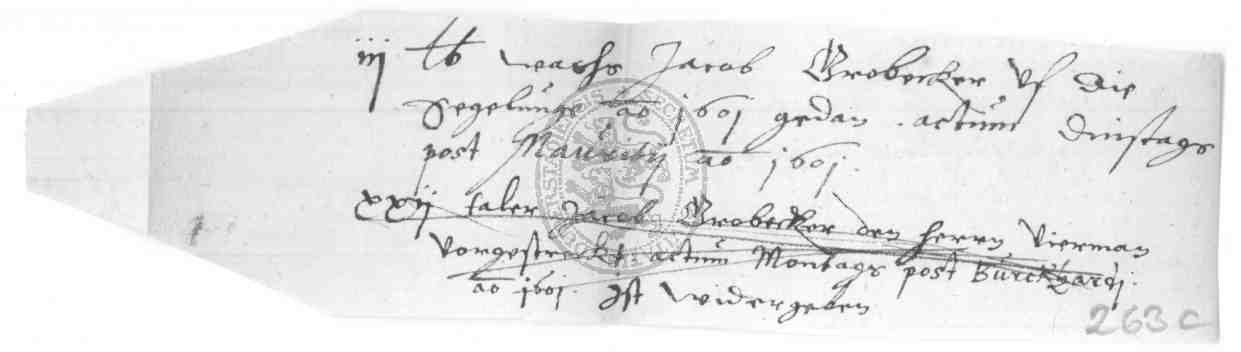 iij lb wachs Jacob Grobecker uf die
Segelunge ao 1601 gedan actum Dinstags
post Mauritij ao 1601.
xxij taler Jacob Grobecker den herrn Vierman
vorgestreckt actum Montags post Burckhardj.
ao 1601. Ist widergeben
263c